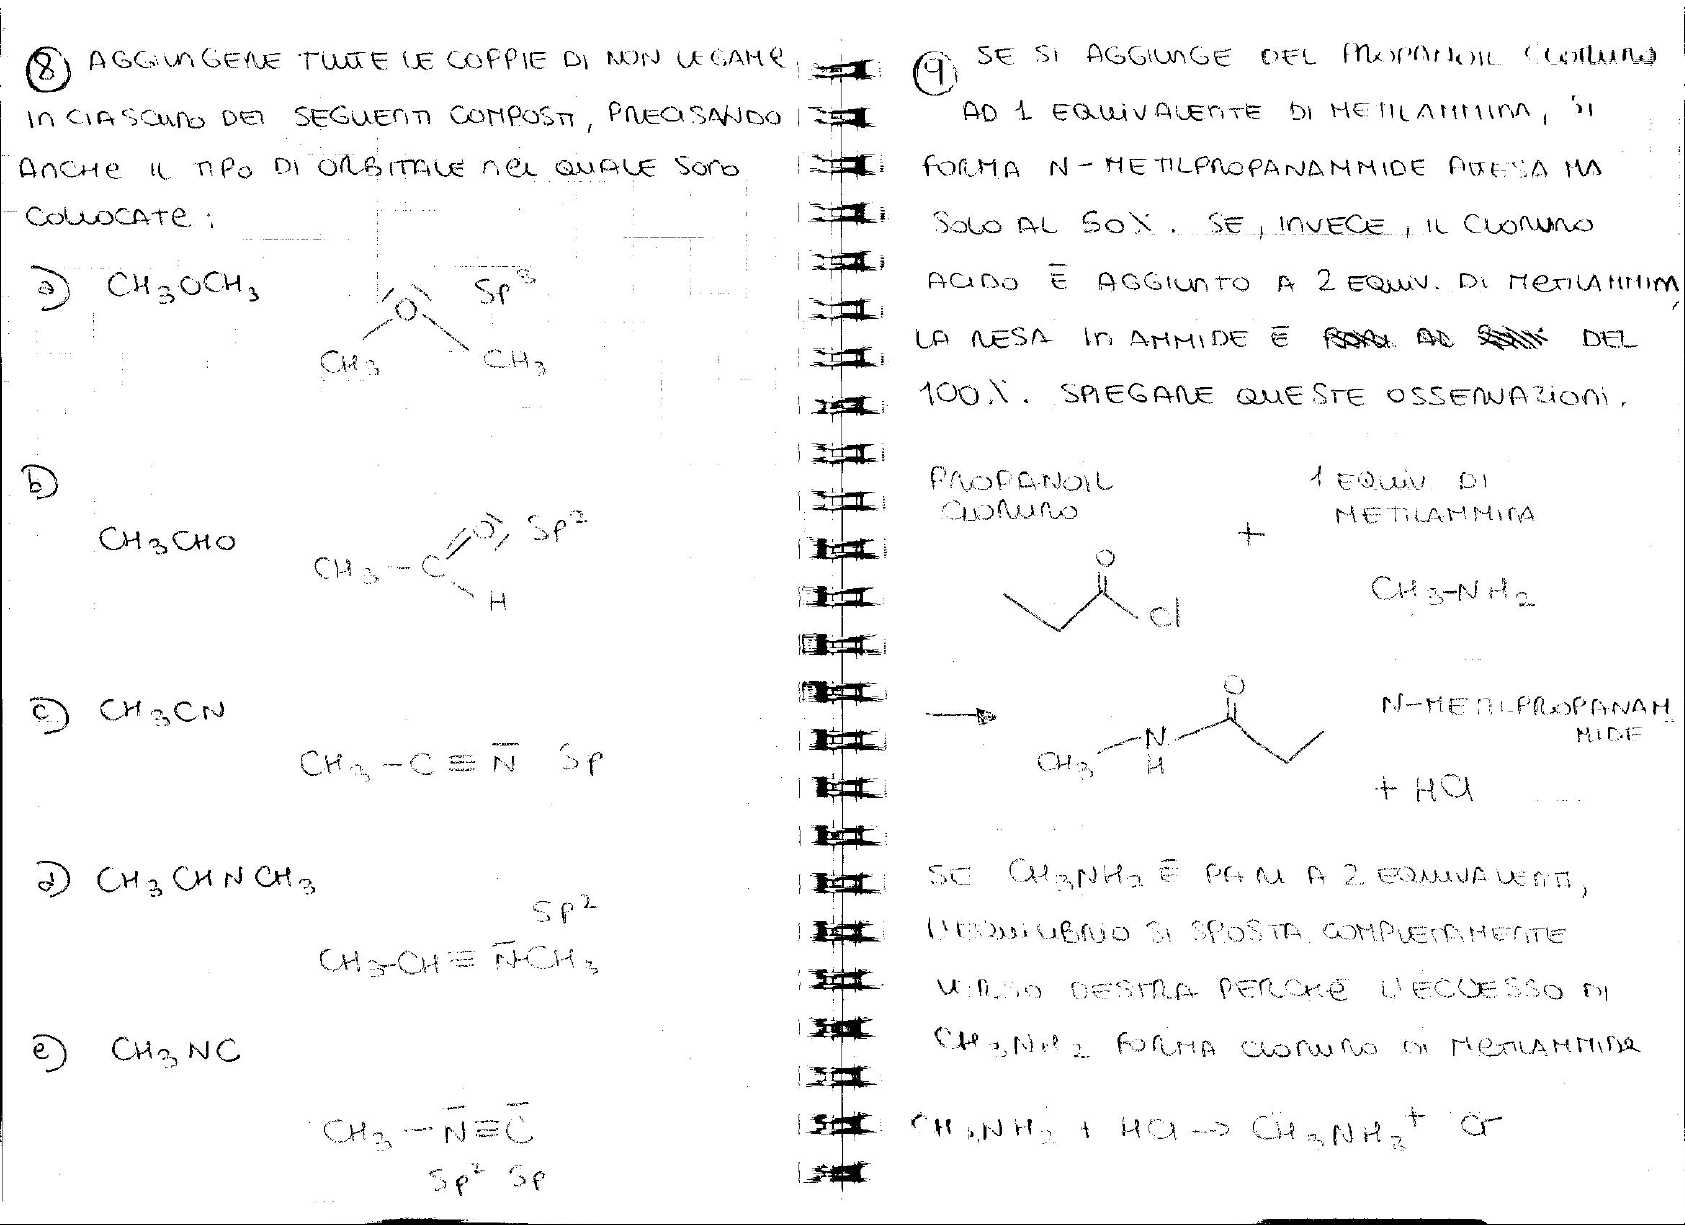 8 AGGIUNGERE TUTTE LE COPPIE DI NON LEGAME
IN CIASCUNO DEI SEGUENTI COMPOSTI, PRECISANDO
ANCHE IL TIPO DI ORBITALE NEL QUALE SONO
COLLOCATE:
a) CH3OCH3
O sp3
CH3 CH3
b)
CH3CHO
CH3-C O sp2
H
c) CH3CN
CH3-C≡N sp
d) CH3CHNCH3
sp2
CH3-CH≡N-CH3
e) CH3NC
CH3-N≡C
sp2 sp
9 SE SI AGGIUNGE DEL PROPANOIL CLORURO
AD 1 EQUIVALENTE DI METILAMMINA, SI
FORMA N-METILPROPANAMMIDE ATTESA MA
SOLO AL 50%. SE, INVECE, IL CLORURO
ACIDO È AGGIUNTO A 2 EQUIV. DI METILAMMIN
LA RESA IN AMMIDE È DEL
100%. SPIEGARE QUESTE OSSERVAZIONI.
PROPANOIL
CLORURO
+
1 EQUIV DI
METILAMMINA
O
Cl
CH3-NH2
→
O
CH3 N
H
N-METILPROPANAM
MIDE
+ HCl
SE CH3NH2 È PARI A 2 EQUIVALENTI,
L'EQUILIBRIO SI SPOSTA COMPLETAMENTE
VERSO DESTRA PERCHÉ L'ECCESSO DI
CH3NH2 FORMA CLORURO DI METILAMMINA
CH3NH2 + HCl → CH3NH3+ Cl-